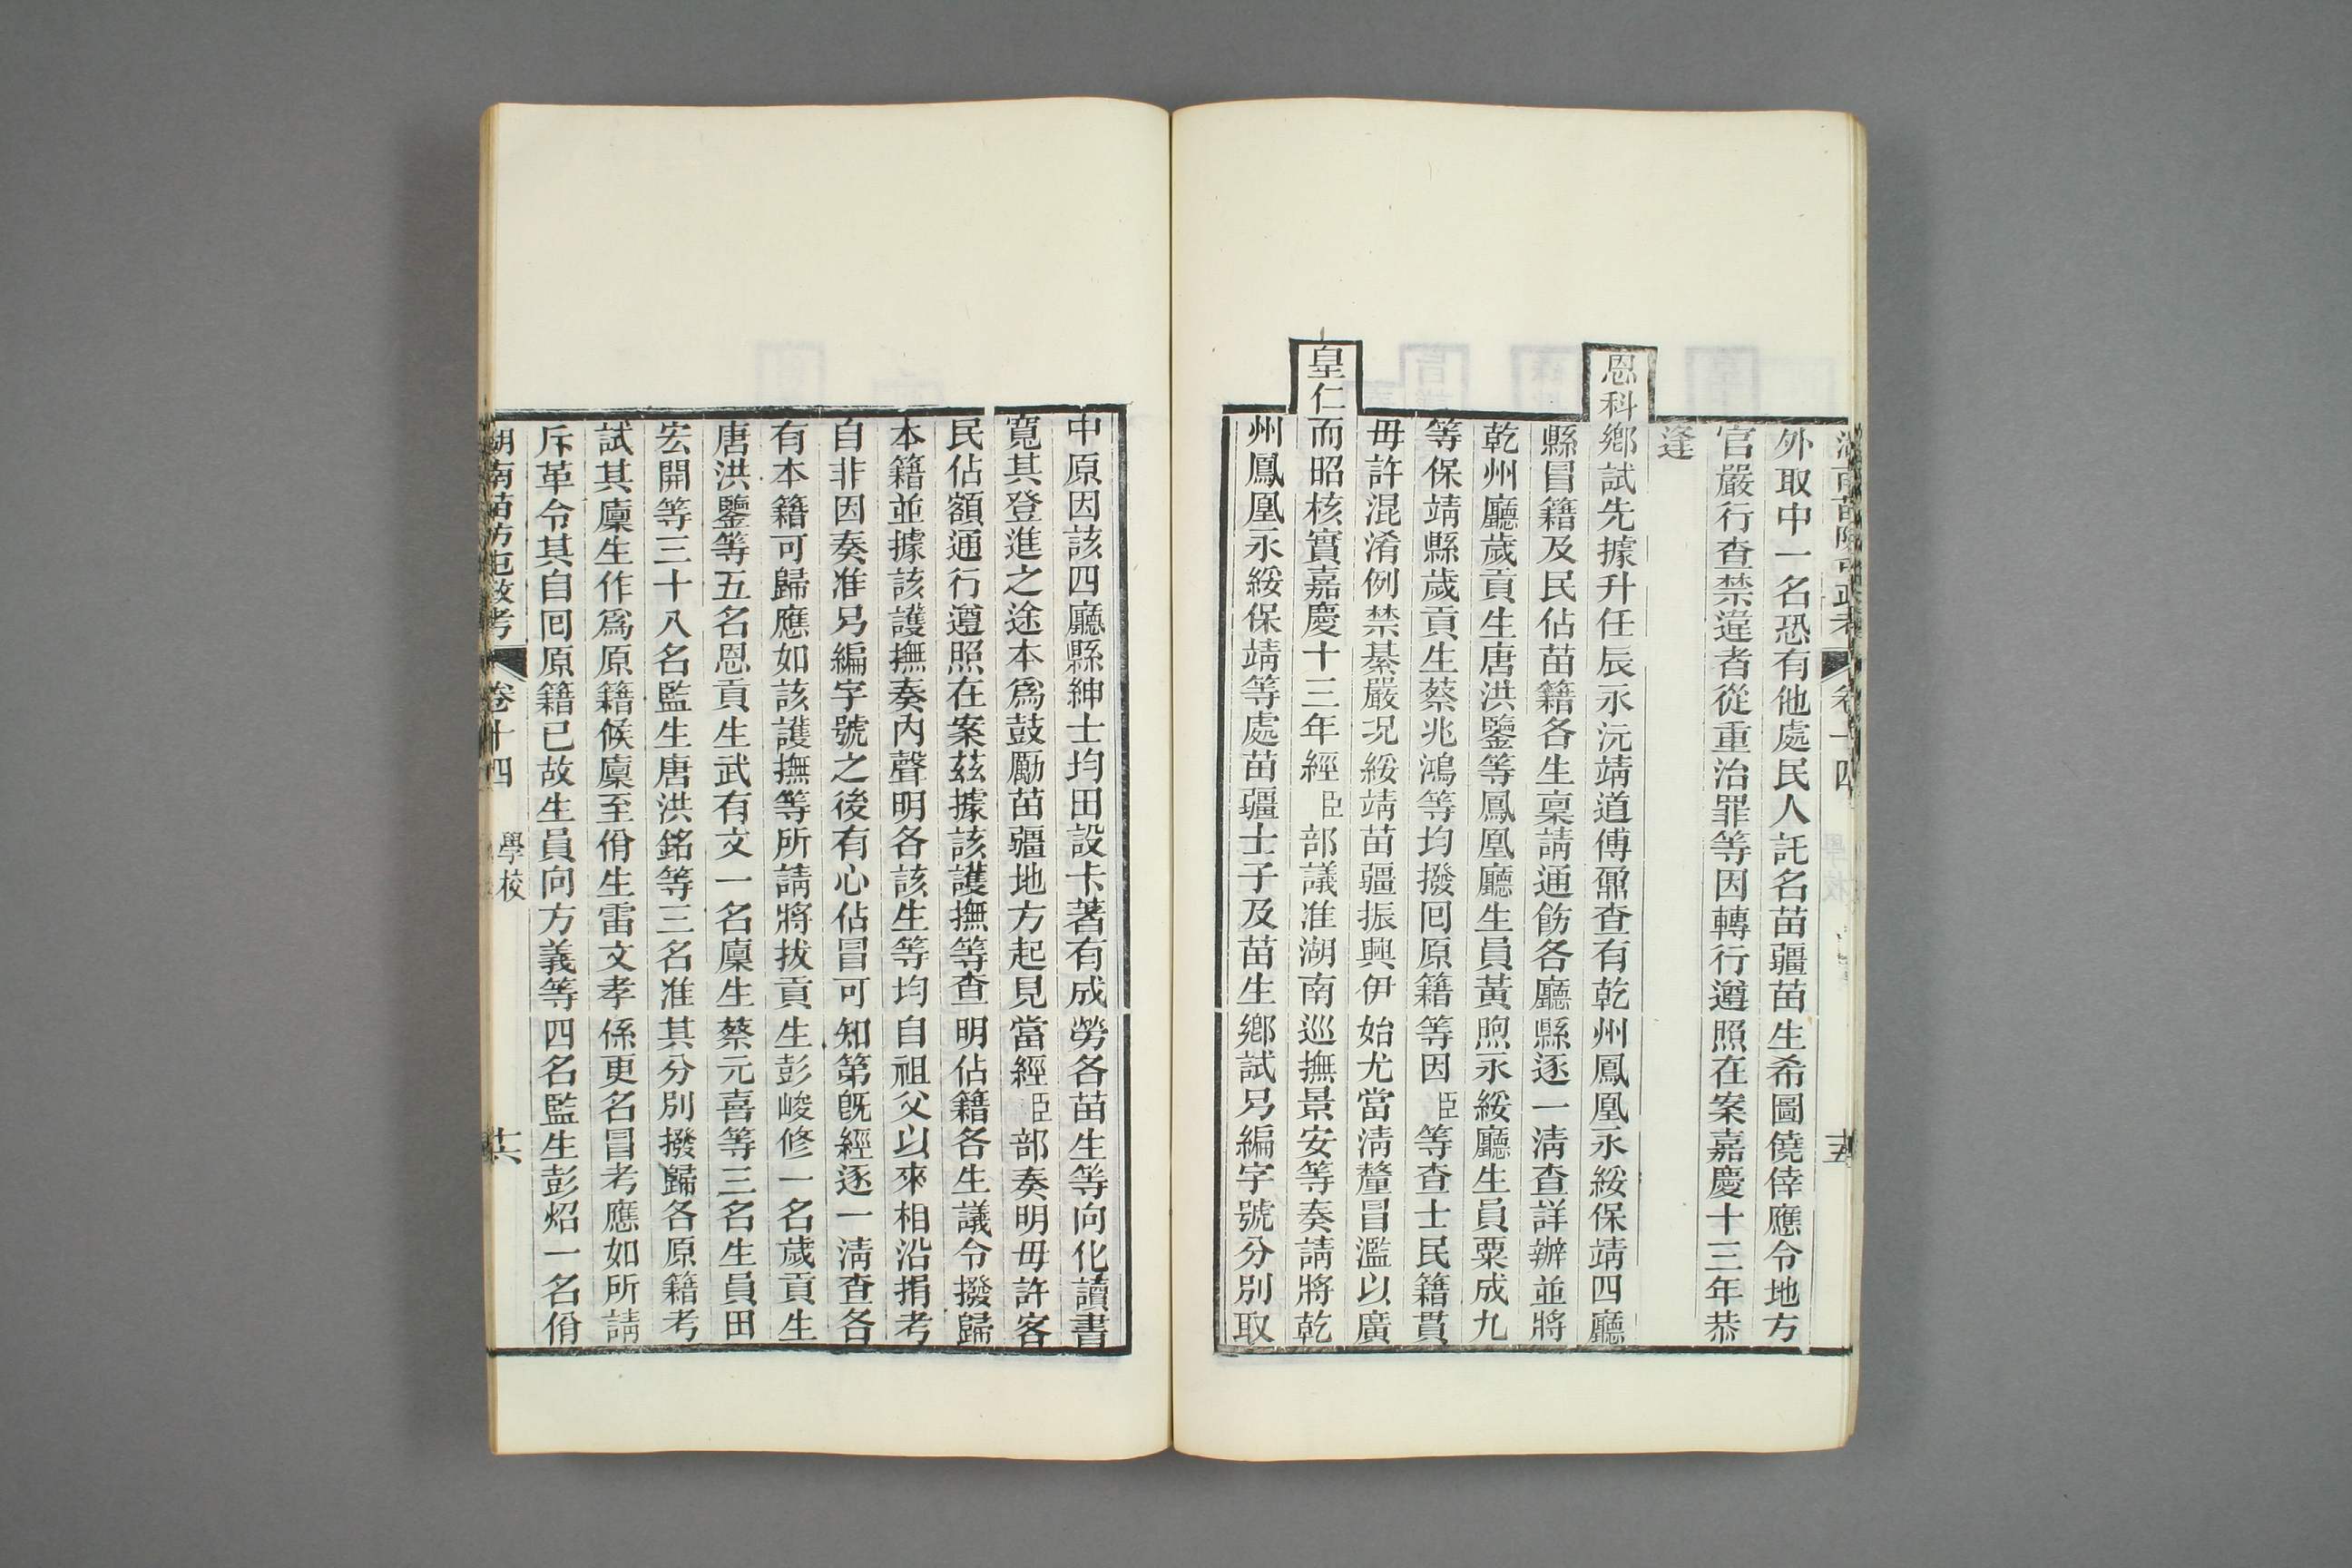 外取中一名恐有他處民人託名苗疆苗生希圖僥倖應令地方
官嚴行查禁違者從重治罪等因轉行遵照在案嘉慶十三年恭
逢
恩科鄉試先據升任辰永沅靖道傅鼐查有乾州鳳凰永綏保靖四廳
縣冒籍及民佔苗籍各生稟請通飭各廳縣逐一清查詳辦並將
乾州廳歲貢生唐洪鑒等鳳凰廳生員黃煦永綏廳生員粟成九
等保靖縣歲貢生蔡兆鴻等均撥回原籍等因臣等查士民籍貫
毋許混淆例禁綦嚴況綏靖苗疆振興伊始尤當清釐冒濫以廣
皇仁而昭核實嘉慶十三年經臣部議准湖南巡撫景安等奏請將乾
州鳳凰永綏保靖等處苗疆士子及苗生鄉試另編字號分別取
中原因該四廳縣紳士均田設卡著有成勞各苗生等向化讀書
寬其登進之途本為鼓勵苗疆地方起見當經臣部奏明毋許客
民佔額通行遵照在案茲據該護撫等查明佔籍各生議令撥歸
本籍並據該護撫奏內聲明各該生等均自祖父以來相沿捐考
自非因奏准另編字號之後有心佔冒可知第既經逐一清查各
有本籍可歸應如該護撫等所請將拔貢生彭峻修一名歲貢生
唐洪鑒等五名恩貢生武有文一名廩生蔡元喜等三名生員田
宏開等三十八名監生唐洪銘等三名准其分別撥歸各原籍考
試其廩生作為原籍候廩至佾生雷文孝係更名冒考應如所請
斥革令其自回原籍已故生員向方義等四名監生彭炤一名佾
湖南苗防屯政考 卷十四 學校 十六